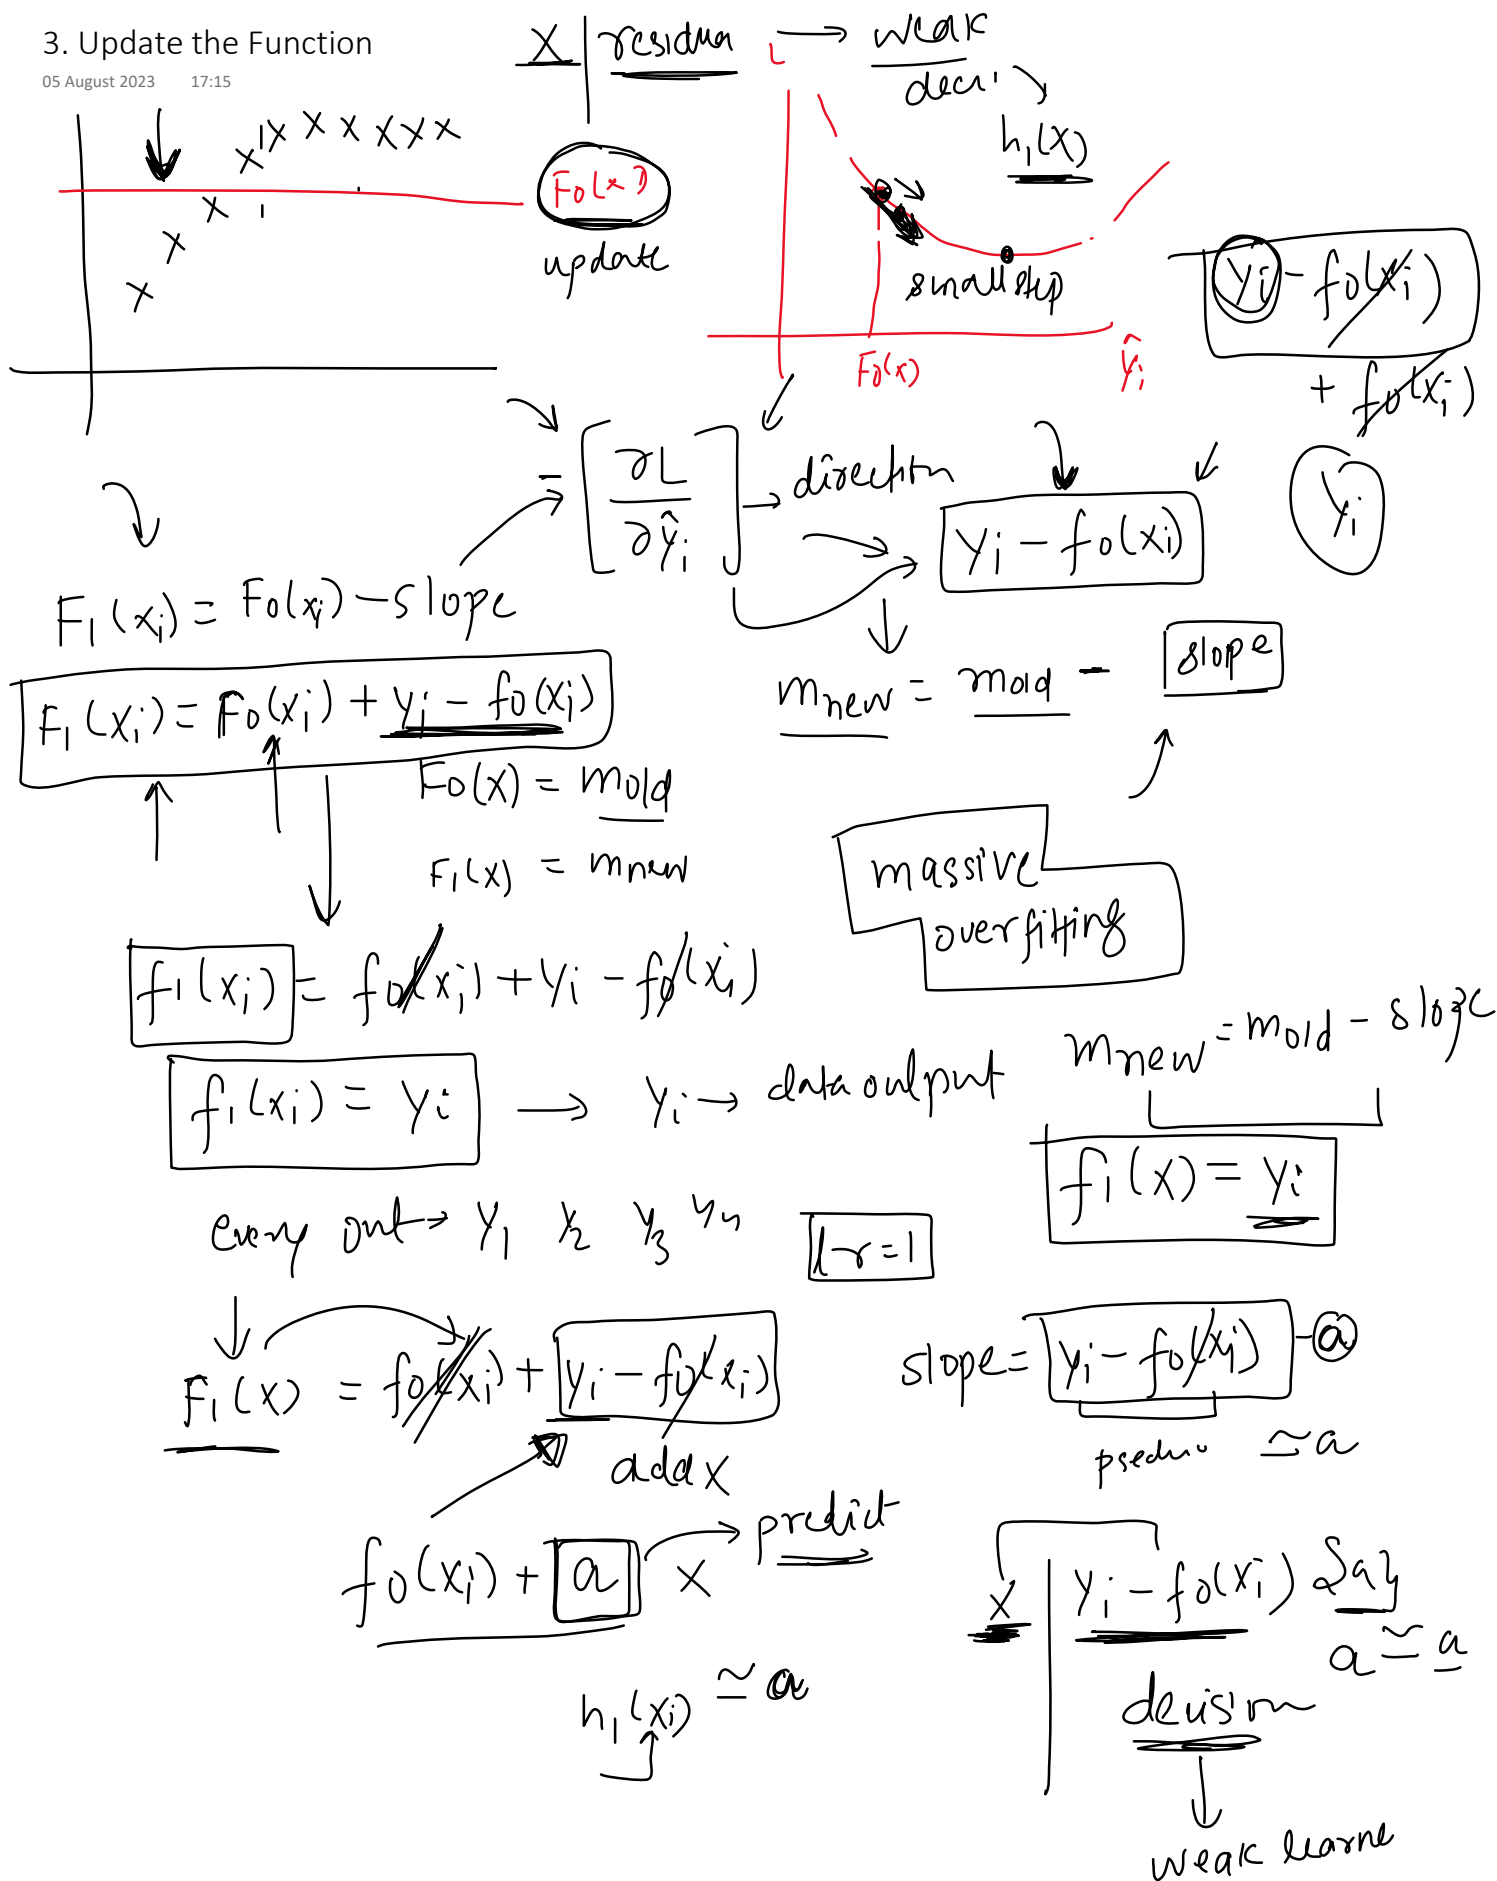 3. Update the Function
05 August 2023 17:15
X | residua → weak
L
h₁(x)
F₀(x)
update
small step
F₀(x)
ŷᵢ
yᵢ - f₀(xᵢ)
+ f₀(xᵢ)
yᵢ
- [∂L/∂ŷᵢ] → direction
yᵢ - f₀(xᵢ)
F₁(xᵢ) = F₀(xᵢ) - slope
F₁(xᵢ) = F₀(xᵢ) + yᵢ - f₀(xᵢ)
mnew = mold - slope
F₀(x) = mold
F₁(x) = mnew
massive
overfitting
f₁(xᵢ) = f₀(xᵢ) + yᵢ - f₀(xᵢ)
mnew = mold - slope
f₁(xᵢ) = yᵢ → yᵢ → data output
f₁(x) = yᵢ
every out → y₁ y₂ y₃ yn
l-r=1
F₁(x) = f₀(xᵢ) + yᵢ - f₀(xᵢ)
slope = yᵢ - f₀(xᵢ) - a
≃ a
add x
f₀(xᵢ) + a x predict
h₁(xᵢ) ≃ a
x | yᵢ - f₀(xᵢ) {a}
a ≃ a
decision
weak learne